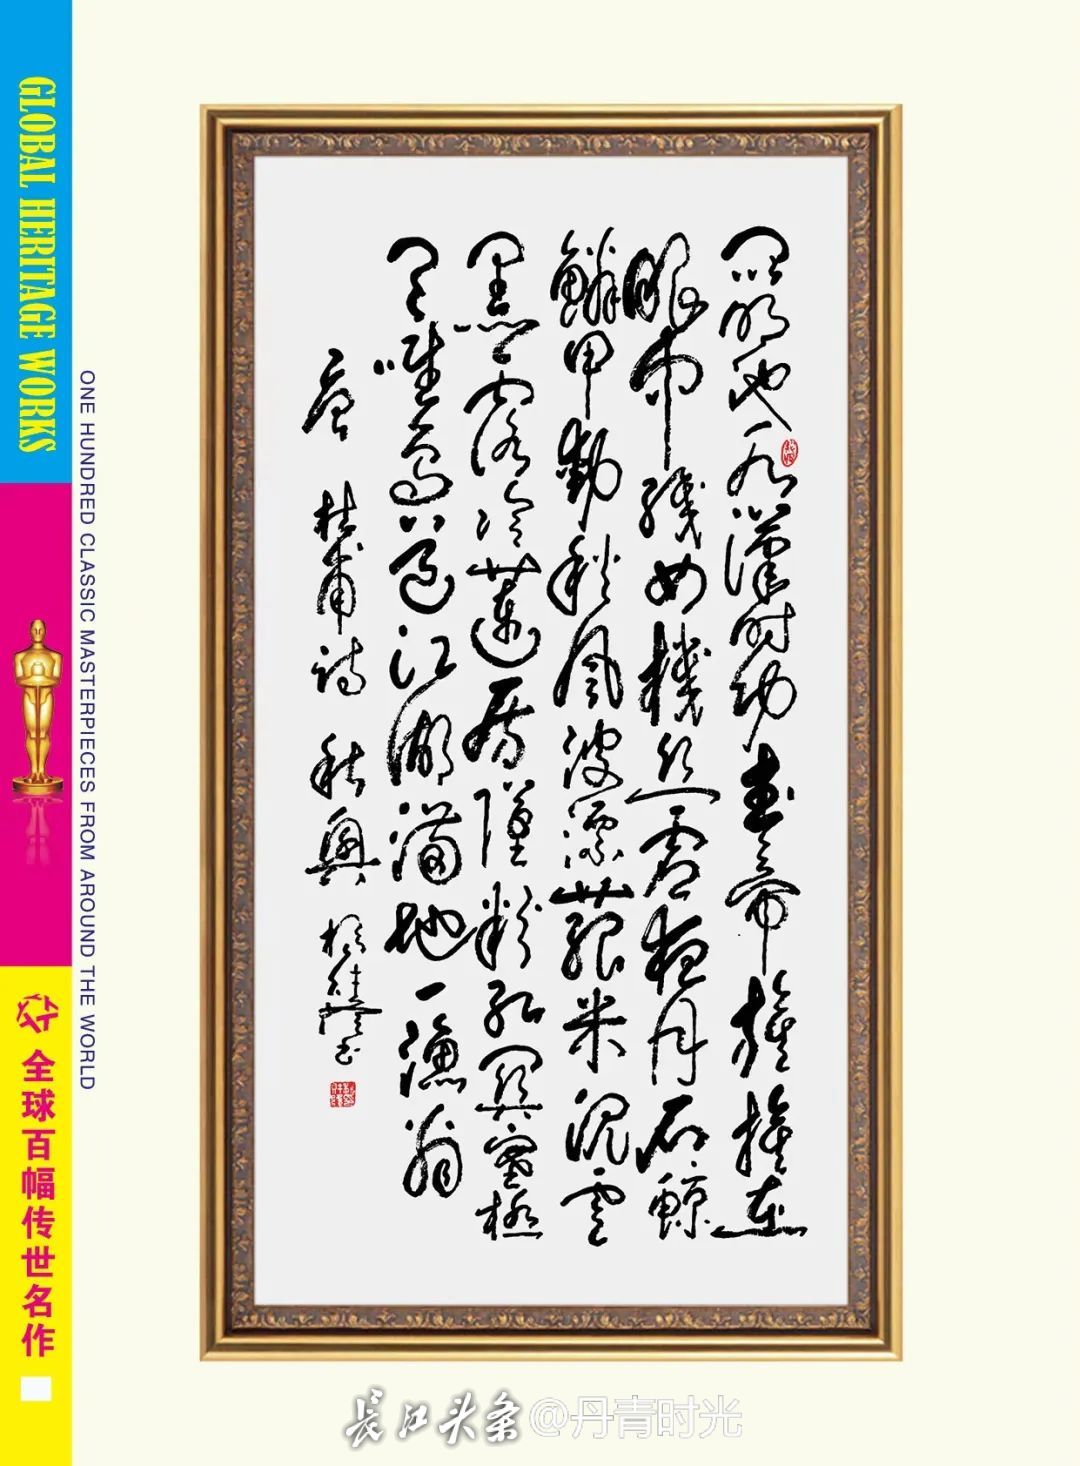 GLOBAL HERITAGE WORKS
ONE HUNDRED CLASSIC MASTERPIECES FROM AROUND THE WORLD
全球百幅传世名作
昆明池水漢時功武帝旌旗在
眼中織女機絲虛夜月石鯨
鱗甲動秋風波漂菰米沉雲
黑露冷蓮房墜粉紅關塞極
天唯鳥道江湖滿地一漁翁
唐 杜甫詩 秋興
长江头条 @丹青时光